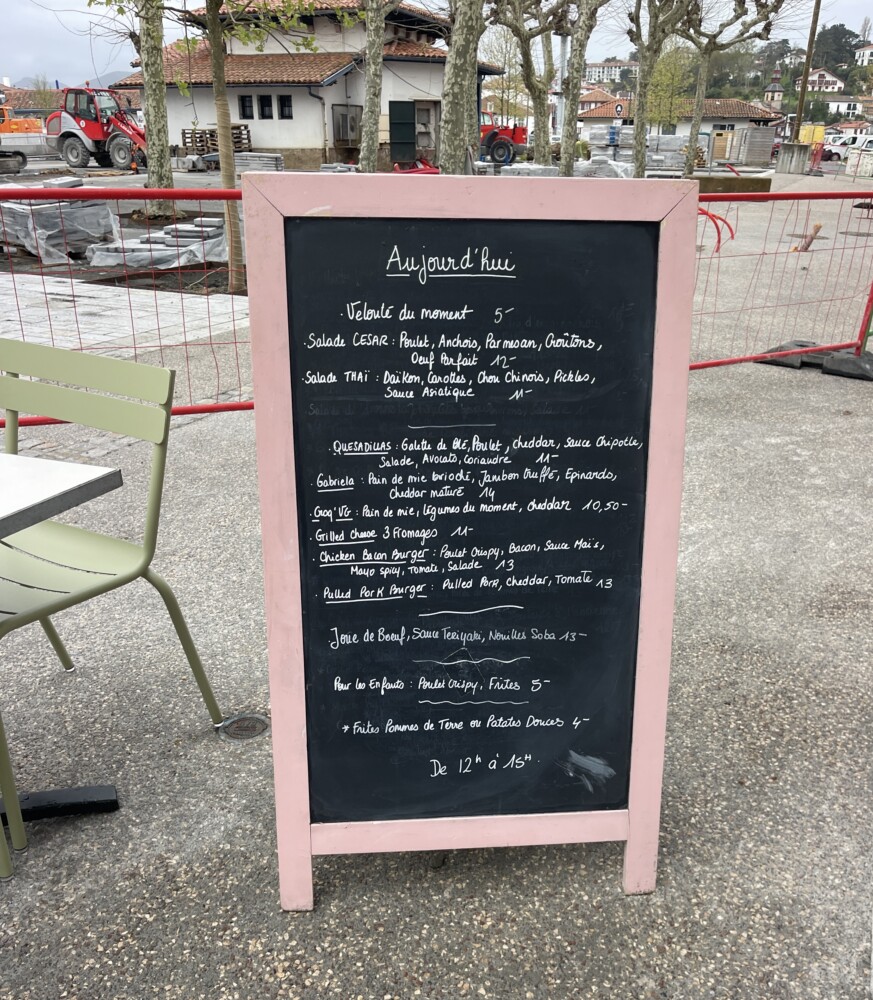 Aujourd'hui
· Velouté du moment 5-
· Salade CESAR : Poulet, Anchois, Parmesan, Croûtons,
Oeuf Parfait 12-
· Salade THAÏ : Daïkon, Carottes, Chou Chinois, Pickles,
Sauce Asiatique 11-
· QUESADILLAS : Galette de Blé, Poulet, cheddar, Sauce Chipotle,
Salade, Avocats, Coriandre 11-
· Gabriela : Pain de mie brioché, Jambon truffé, Epinards,
Cheddar maturé 14
· Croq'VG : Pain de mie, légumes du moment, cheddar 10,50-
· Grilled Cheese 3 Fromages 11-
· Chicken Bacon Burger : Poulet Crispy, Bacon, Sauce Maïs,
Mayo spicy, Tomate, Salade 13
· Pulled Pork Burger : Pulled Pork, Cheddar, Tomate 13
· Joue de Boeuf, Sauce Teriyaki, Nouilles Soba 13-
Pour les Enfants : Poulet Crispy, Frites 5-
* Frites Pommes de Terre ou Patates Douces 4-
De 12h à 15H.